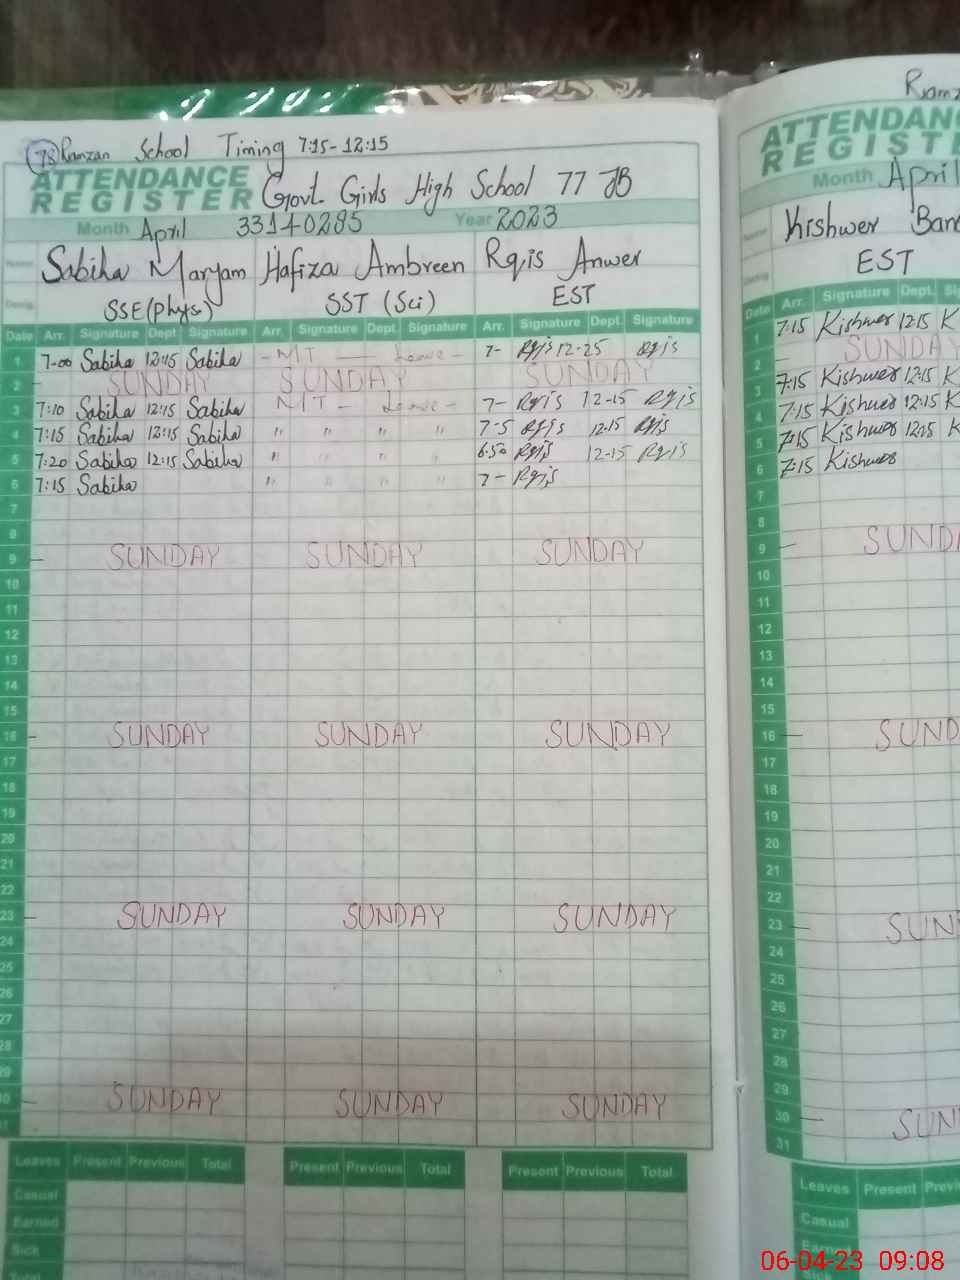 78 Ramzan School Timing 7:15-12:15
ATTENDANCE REGISTER Govt. Girls High School 77 JB
Month April 33140285 Year 2023
Name Sabiha Maryam Hafiza Ambreen Rqis Anwer
Desig. SSE(Phys) SST (Sci) EST
Date Arr. Signature Dept Signature Arr. Signature Dept. Signature Arr. Signature Dept. Signature
1 7-00 Sabiha 12:15 Sabiha - MT - Leave - 7- Rqis 12-25 Rqis
2 - SUNDAY SUNDAY SUNDAY
3 7:10 Sabiha 12:15 Sabiha MT - Leave - 7- Rqis 12-15 Rqis
4 7:15 Sabiha 12:15 Sabiha " " " " 7-5 Rqis 12.15 Rqis
5 7:20 Sabiha 12:15 Sabiha " " " " 6.50 Rqis 12-15 Rqis
6 7:15 Sabiha " " " " 7- Rqis
7
8
9 - SUNDAY SUNDAY SUNDAY
10
11
12
13
14
15
16 - SUNDAY SUNDAY SUNDAY
17
18
19
20
21
22
23 - SUNDAY SUNDAY SUNDAY
24
25
26
27
28
29
30 - SUNDAY SUNDAY SUNDAY
31
Leaves Present Previous Total Present Previous Total Present Previous Total
Casual
Earned
Sick
Total
Ramz
ATTENDANC
REGIST
Month April
Name Kishwer Ban
Desig. EST
Date Arr. Signature Dept. Si
1 7:15 Kishwer 12:15 K
2 - SUNDAY
3 7:15 Kishwer 12:15 K
4 7:15 Kishwer 12:15 K
5 7:15 Kishwer 12:15 K
6 7:15 Kishwer
7
8
9 - SUNDA
10
11
12
13
14
15
16 - SUND
17
18
19
20
21
22
23 - SUN
24
25
26
27
28
29
30 - SUN
31
Leaves Present Previ
Casual
Earned
06-04-23 09:08